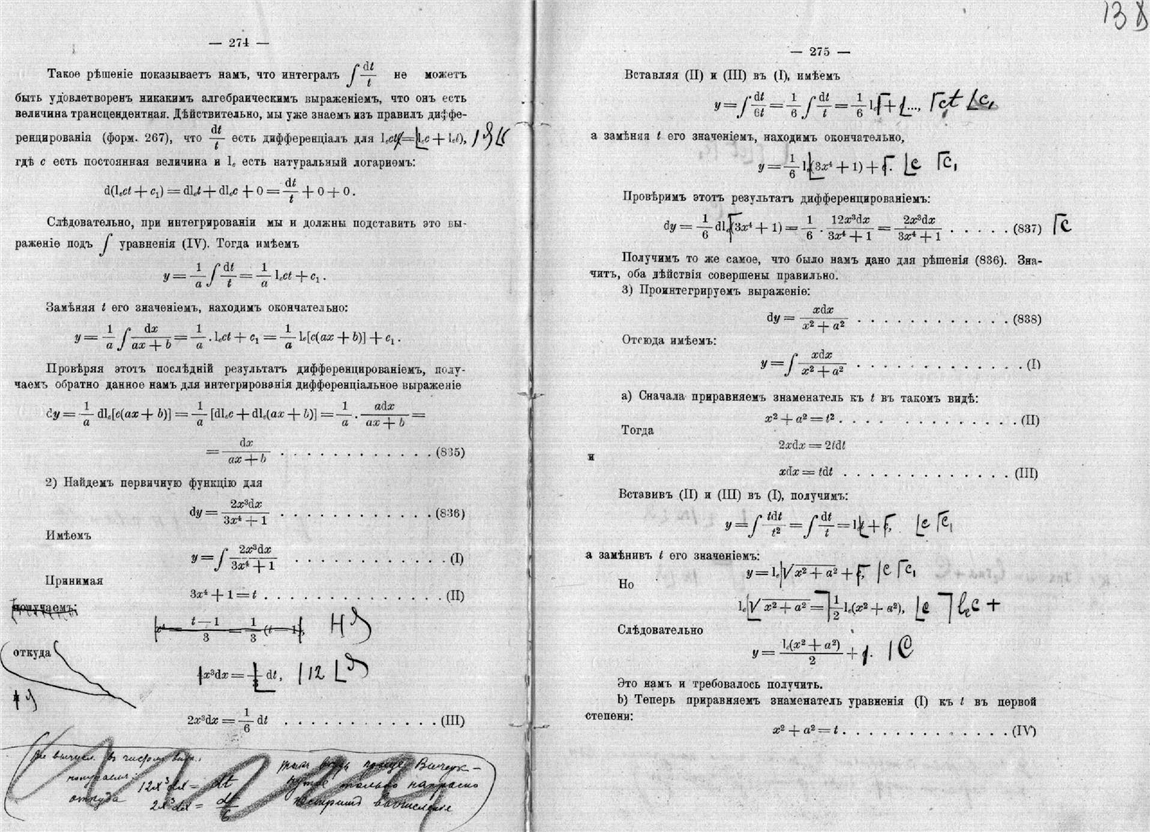 — 274 —
Такое рѣшеніе показываетъ намъ, что интегралъ ∫ dt/t не можетъ
быть удовлетворенъ никакимъ алгебраическимъ выраженіемъ, что онъ есть
величина трансцендентная. Дѣйствительно, мы уже знаемъ изъ правилъ диффе-
ренцированія (форм. 267), что dt/t есть дифференціалъ для lₑct(=lₑc + lₑt),
гдѣ c есть постоянная величина и lₑ есть натуральный логариѳмъ:
d(lₑct + c₁) = dlₑt + dlₑc + 0 = dt/t + 0 + 0.
Слѣдовательно, при интегрированіи мы и должны подставить это вы-
раженіе подъ ∫ уравненія (IV). Тогда имѣемъ
y = 1/a ∫ dt/t = 1/a lₑct + c₁.
Замѣняя t его значеніемъ, находимъ окончательно:
y = 1/a ∫ dx/(ax + b) = 1/a . lₑct + c₁ = 1/a lₑ[c(ax + b)] + c₁.
Провѣряя этотъ послѣдній результатъ дифференцированіемъ, полу-
чаемъ обратно данное намъ для интегрированія дифференціальное выраженіе
dy = 1/a dlₑ[c(ax + b)] = 1/a [dlₑc + dlₑ(ax + b)] = 1/a . adx/(ax + b) =
= dx/(ax + b) . . . . . . . . . . (835)
2) Найдемъ первичную функцію для
dy = 2x³dx/(3x⁴ + 1) . . . . . . . . . . (836)
Имѣемъ
y = ∫ 2x³dx/(3x⁴ + 1) . . . . . . . . . . (I)
Принимая
3x⁴ + 1 = t . . . . . . . . . . (II)
получаемъ:
x⁴ = (t − 1)/3 = 1/3 (t − 1),
откуда
x³dx = dt, 12
2x³dx = 1/6 dt . . . . . . . . . . (III)
получаем: 12x³dx = dt
откуда 2x³dx = dt/6
только напрасно
138
— 275 —
Вставляя (II) и (III) въ (I), имѣемъ
y = ∫ dt/6t = 1/6 ∫ dt/t = 1/6 lₑ + ..., ct c₁
а замѣняя t его значеніемъ, находимъ окончательно,
y = 1/6 lₑ(3x⁴ + 1) + . c c₁
Провѣримъ этотъ результатъ дифференцированіемъ:
dy = 1/6 dlₑ(3x⁴ + 1) = 1/6 . 12x³dx/(3x⁴ + 1) = 2x³dx/(3x⁴ + 1) . . . . . (837) c
Получимъ то же самое, что было намъ дано для рѣшенія (836). Зна-
читъ, оба дѣйствія совершены правильно.
3) Проинтегрируемъ выраженіе:
dy = xdx/(x² + a²) . . . . . . . . . . (838)
Отсюда имѣемъ:
y = ∫ xdx/(x² + a²) . . . . . . . . . . (I)
a) Сначала приравняемъ знаменатель къ t въ такомъ видѣ:
x² + a² = t² . . . . . . . . . . (II)
Тогда
2xdx = 2tdt
и
xdx = tdt . . . . . . . . . . (III)
Вставивъ (II) и (III) въ (I), получимъ:
y = ∫ tdt/t² = ∫ dt/t = lₑt + , c c₁
а замѣнивъ t его значеніемъ:
y = lₑ√(x² + a²) + , c c₁
Но
lₑ√(x² + a²) = 1/2 lₑ(x² + a²), c lₑc +
Слѣдовательно
y = lₑ(x² + a²)/2 + . C
Это намъ и требовалось получить.
b) Теперь приравняемъ знаменатель уравненія (I) къ t въ первой
степени:
x² + a² = t . . . . . . . . . . (IV)